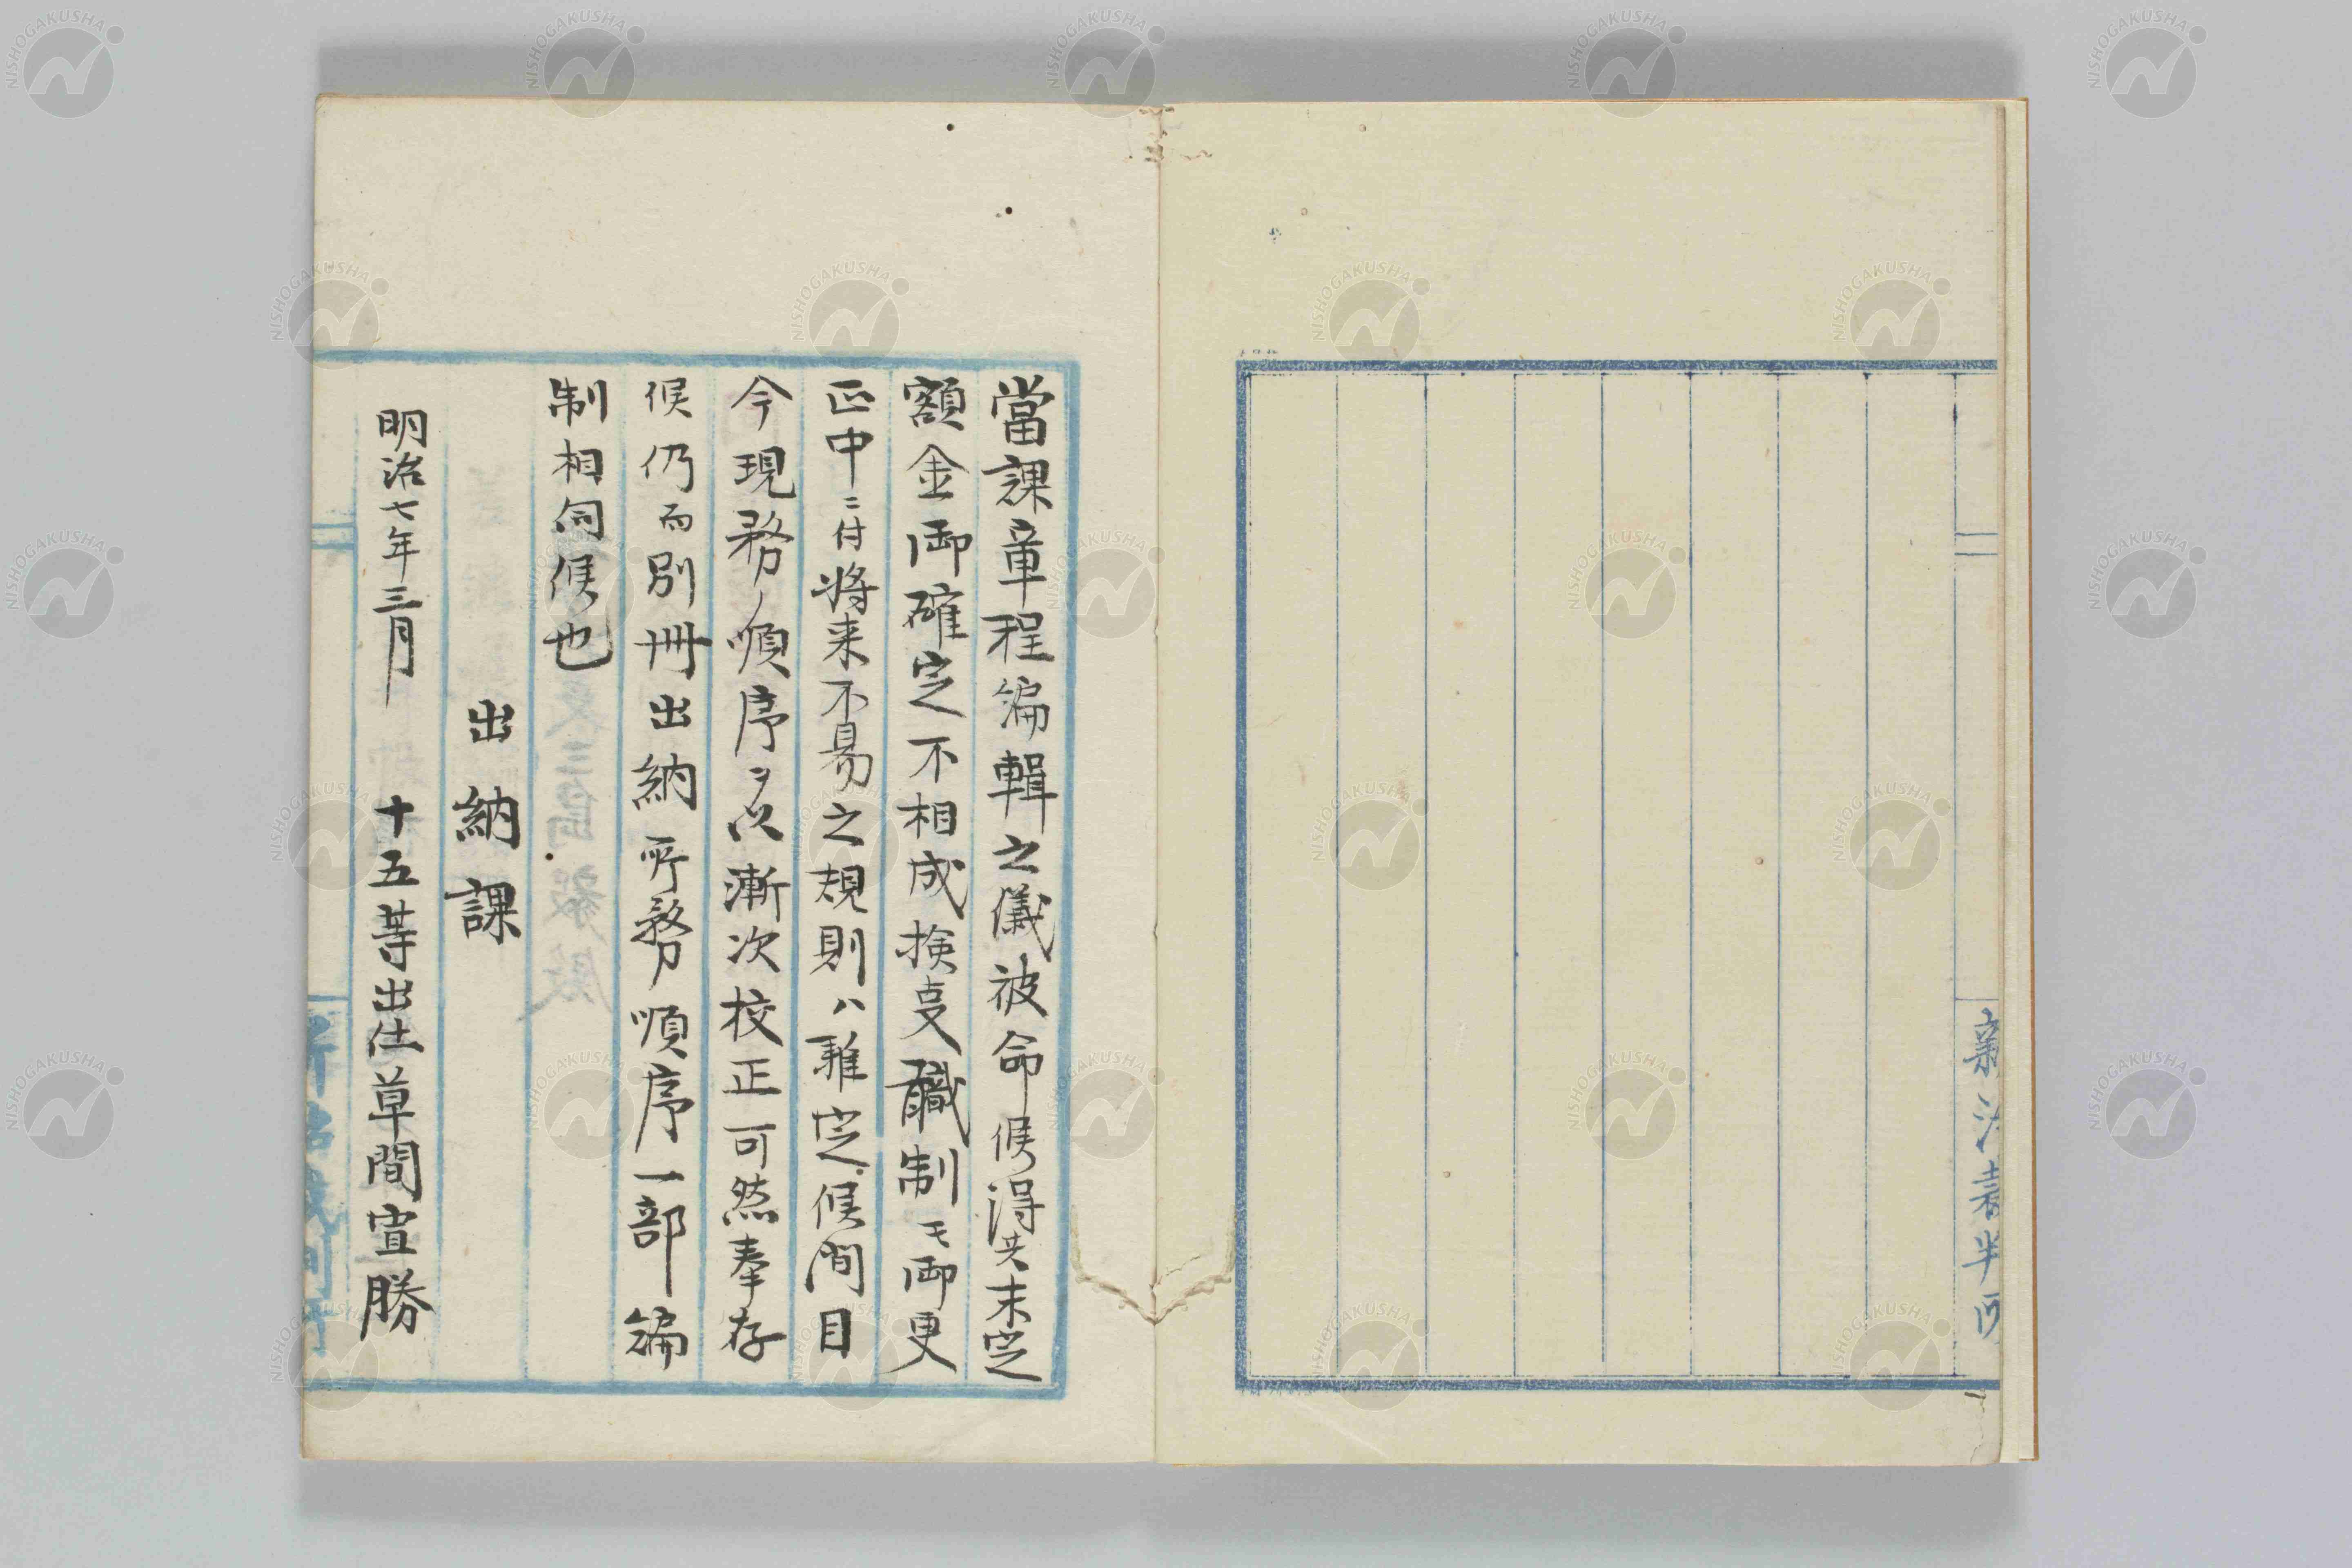 當課章程編輯之儀被命候得共未定
額金御確定不相成検査職制モ御更
正中ニ付将来不易之規則ハ難定候間目
今現務ノ順序ヲ以漸次校正可然奉存
候仍而別冊出納所務順序一部編
制相伺候也
出納課
明治七年三月 十五等出仕草間宣勝
NISHOGAKUSHA